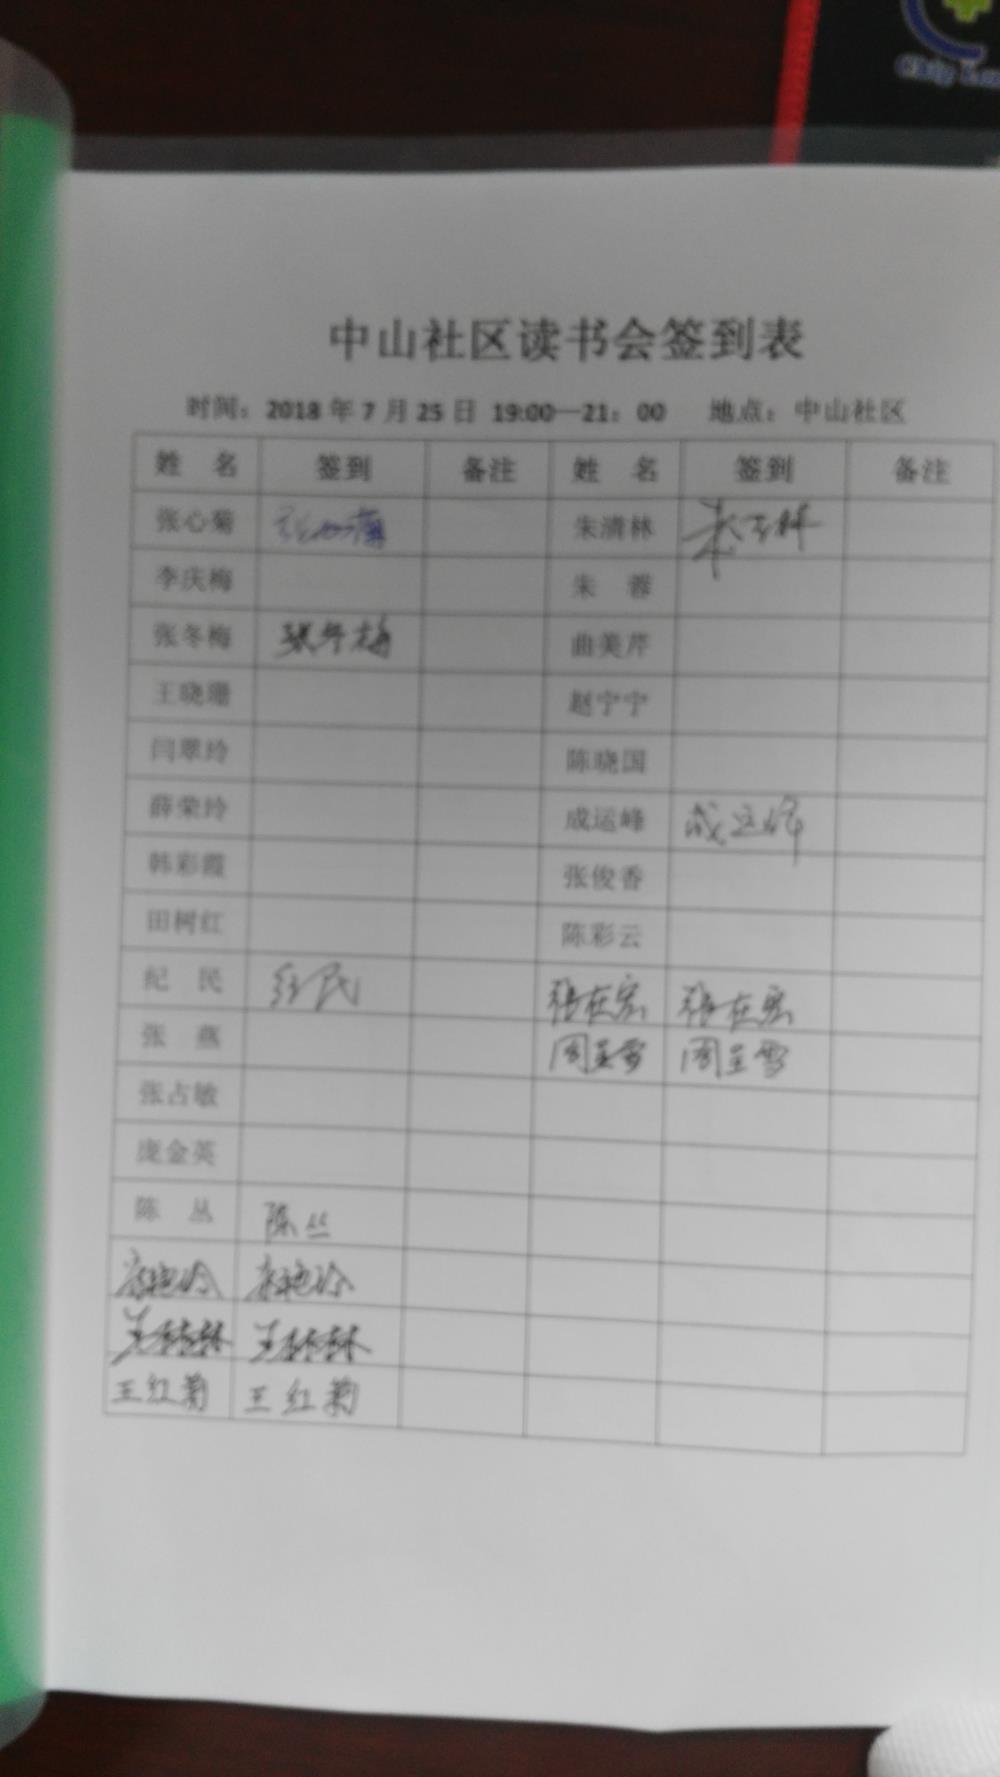 中山社区读书会签到表
时间：2018 年 7 月 25 日 19:00—21：00 地点：中山社区
姓 名 签到 备注 姓 名 签到 备注
张心菊 朱清林
李庆梅 朱 蓉
张冬梅 张冬梅 曲美芹
王晓珊 赵宁宁
闫翠玲 陈晓国
薛荣玲 成运峰 成运峰
韩彩霞 张俊香
田树红 陈彩云
纪 民 纪民 张在宏 张在宏
张 燕
张占敏
庞金英
陈 丛 陈丛
王红菊 王红菊